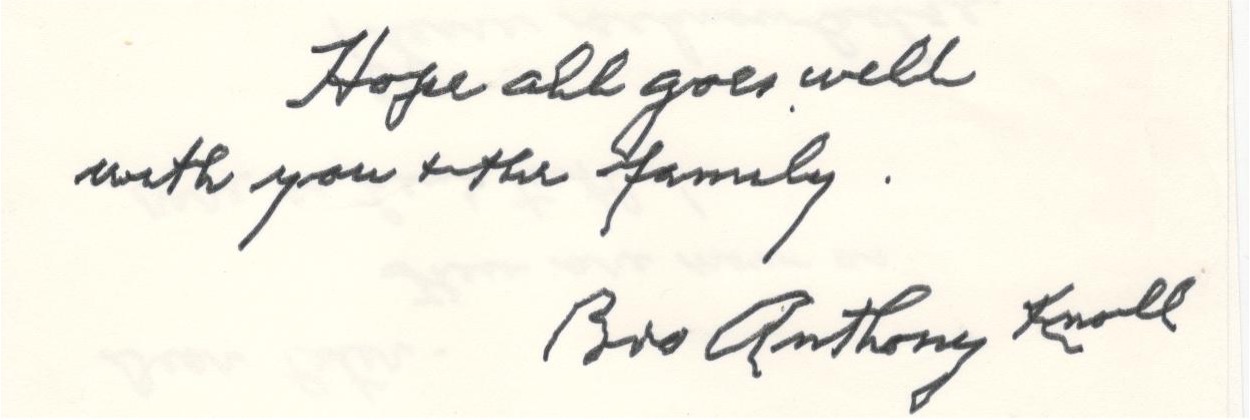 Hope all goes well
with you + the family.
Bro Anthony Knoll